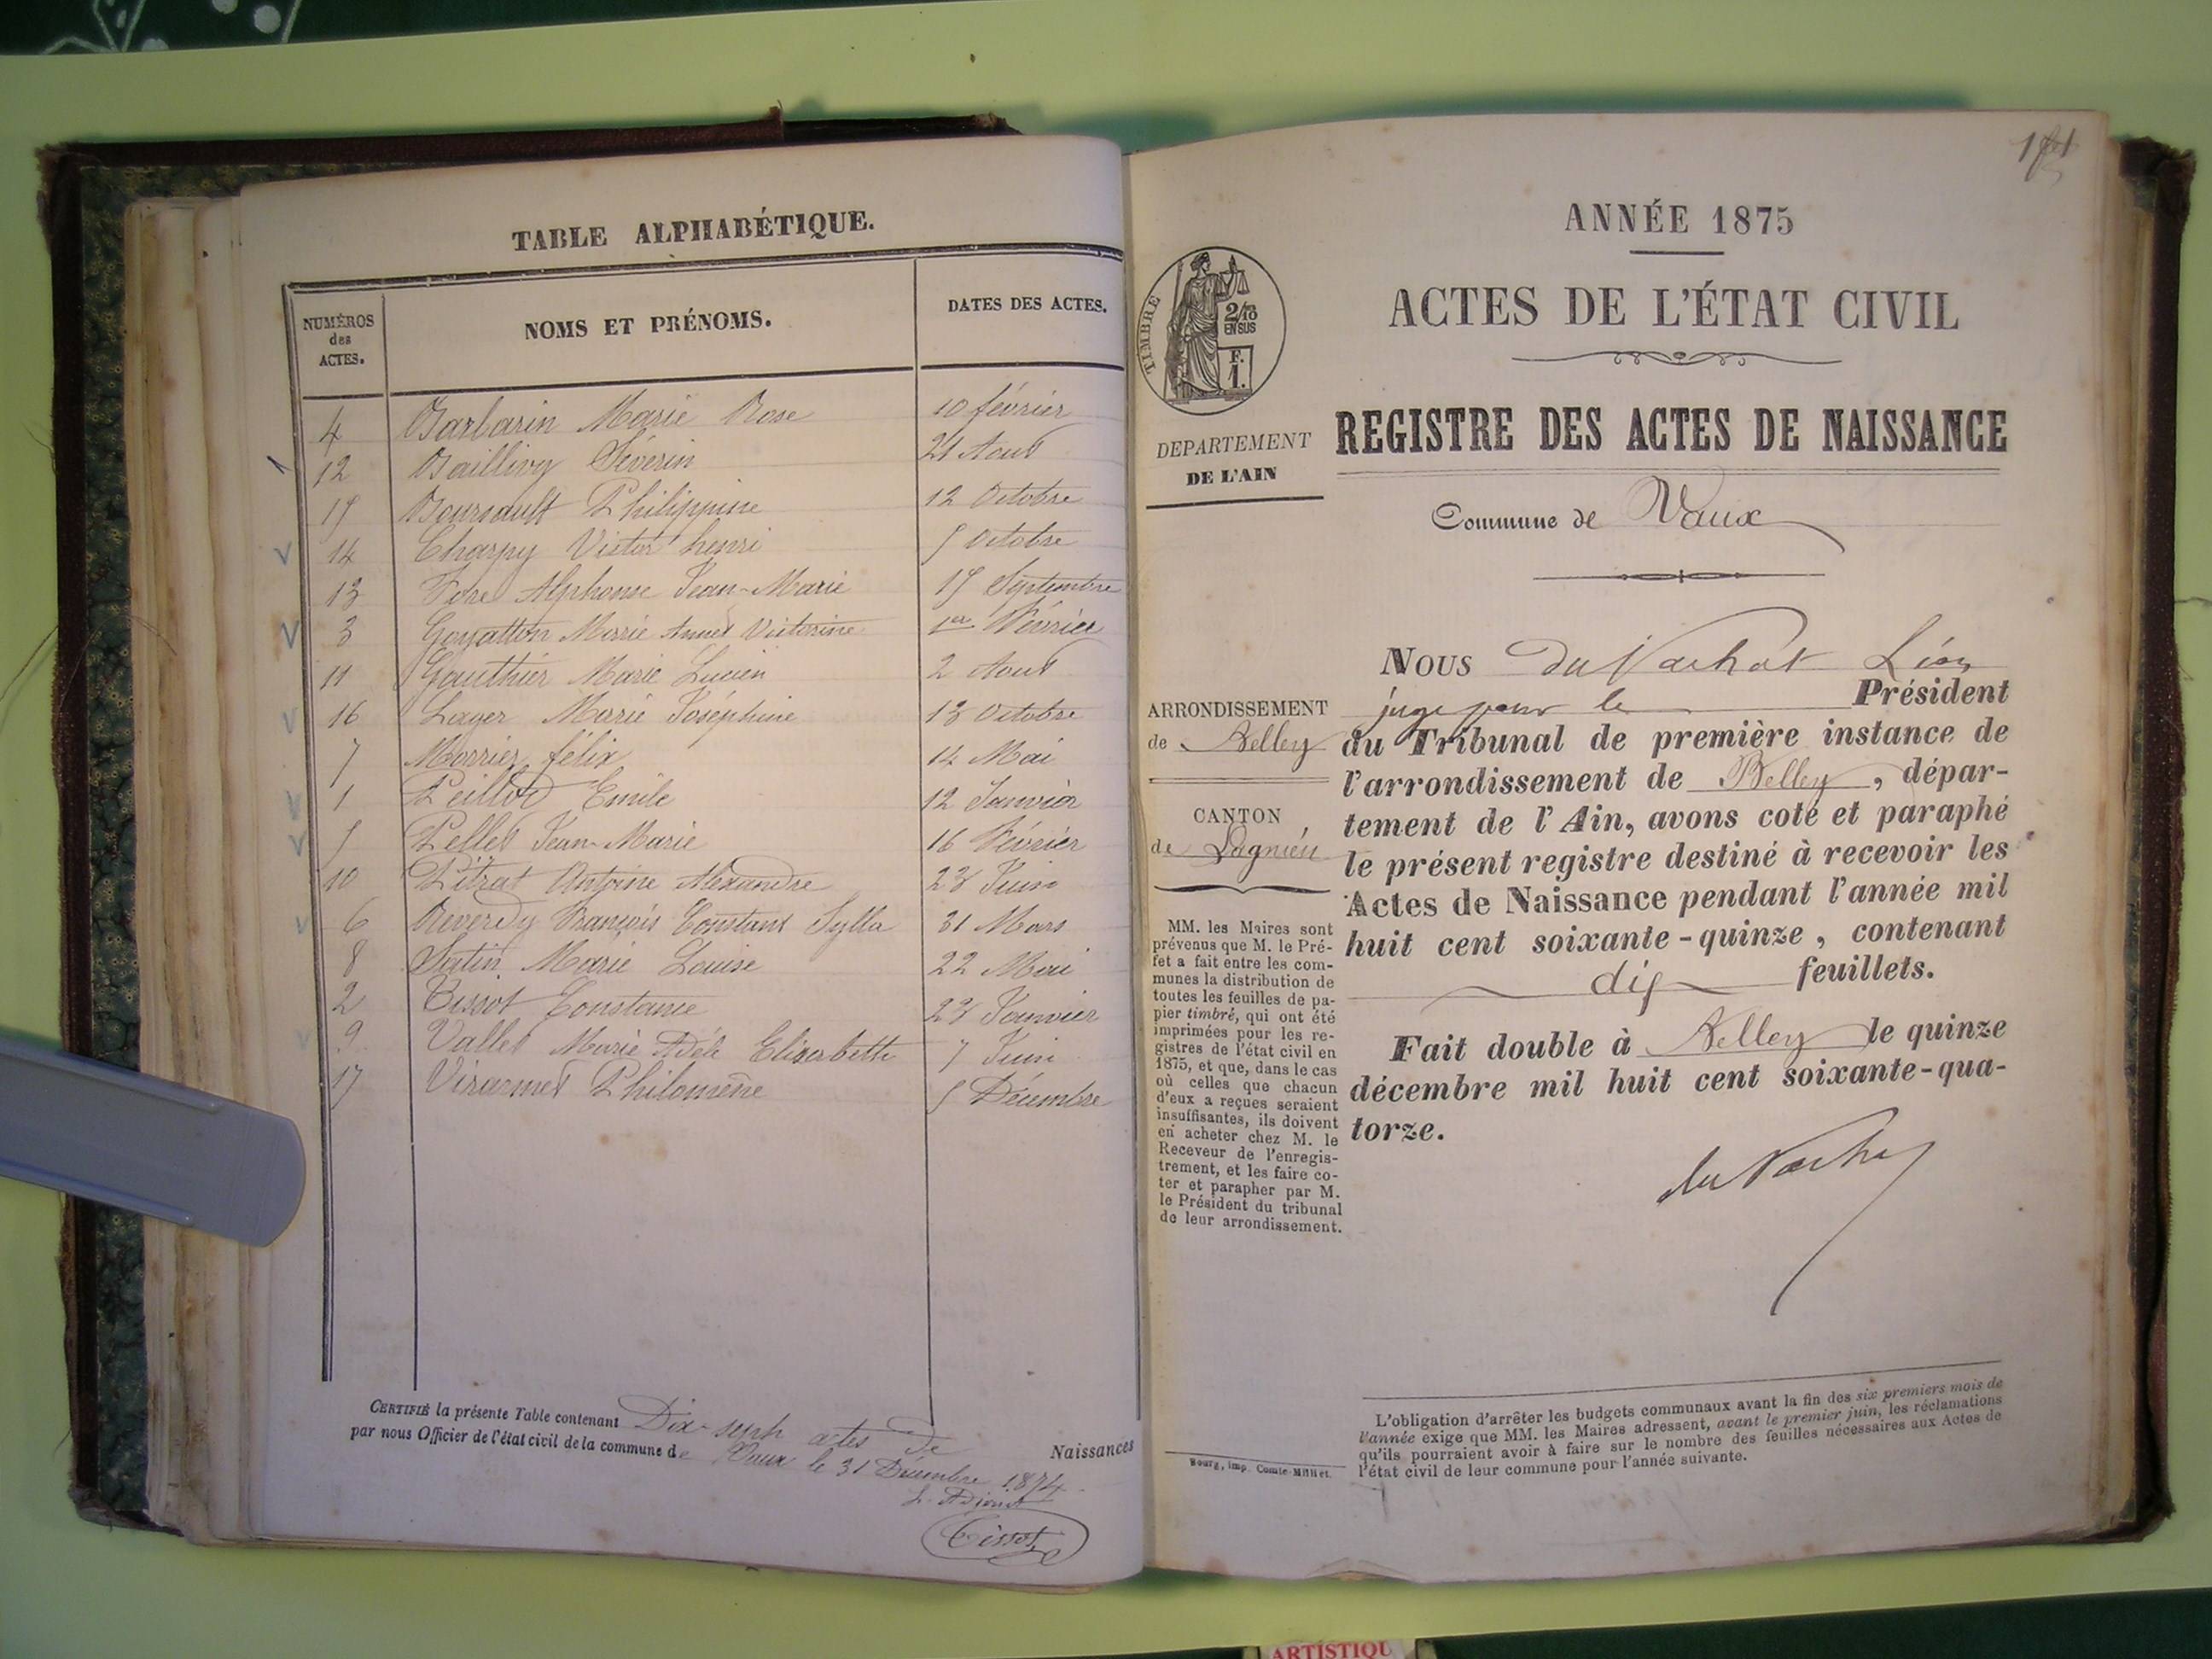 TABLE ALPHABÉTIQUE.
NUMÉROS des ACTES.
NOMS ET PRÉNOMS.
DATES DES ACTES.
4 Barbarin Marie Rose 10 février
12 Baillivy Séverin 21 Aout
15 Boursault Philippine 12 Octobre
14 Charpy Victor henri 5 Octobre
13 Fore Alphonse Jean-Marie 15 Septembre
3 Goyatton Marie Annet Victorine 1er Février
11 Gauthier Marie Lucien 2 Aout
16 Lager Marie Joséphine 13 Octobre
7 Morrier félix 14 Mai
1 Peillod Emile 12 Janvier
5 Pellet Jean-Marie 16 Février
10 Pitrat Antoine Alexandre 23 Juin
6 Reverdy François Constant Sylla 31 Mars
8 Sutin Marie Louise 22 Mai
2 Tissot Constance 23 Janvier
9 Vallet Marie Adéle Elisabeth 7 Juin
17 Virarmet Philomène 5 Décembre
CERTIFIÉ la présente Table contenant Dix-sept actes de Naissances
par nous Officier de l'état civil de la commune de Vaux le 31 Décembre 1874
L. Adjoint
Tissot
ANNÉE 1875
ACTES DE L'ÉTAT CIVIL
TIMBRE
2/10
EN SUS
F.
1.
DEPARTEMENT
DE L'AIN
REGISTRE DES ACTES DE NAISSANCE
Commune de Vaux
ARRONDISSEMENT
de Belley
CANTON
de Lagnieu
MM. les Maires sont
prévenus que M. le Pré-
fet a fait entre les com-
munes la distribution de
toutes les feuilles de pa-
pier timbré, qui ont été
imprimées pour les re-
gistres de l'état civil en
1875, et que, dans le cas
où celles que chacun
d'eux a reçues seraient
insuffisantes, ils doivent
en acheter chez M. le
Receveur de l'enregis-
trement, et les faire co-
ter et parapher par M.
le Président du tribunal
de leur arrondissement.
NOUS du Vachat Léon
juge pour le Président
du Tribunal de première instance de
l'arrondissement de Belley, dépar-
tement de l'Ain, avons coté et paraphé
le présent registre destiné à recevoir les
Actes de Naissance pendant l'année mil
huit cent soixante-quinze, contenant
dix feuillets.
Fait double à Belley le quinze
décembre mil huit cent soixante-qua-
torze.
du Vachat
L'obligation d'arrêter les budgets communaux avant la fin des six premiers mois de
l'année exige que MM. les Maires adressent, avant le premier juin, les réclamations
qu'ils pourraient avoir à faire sur le nombre des feuilles nécessaires aux Actes de
l'état civil de leur commune pour l'année suivante.
Bourg, imp. Comte-Milliet.
ARTISTIQU